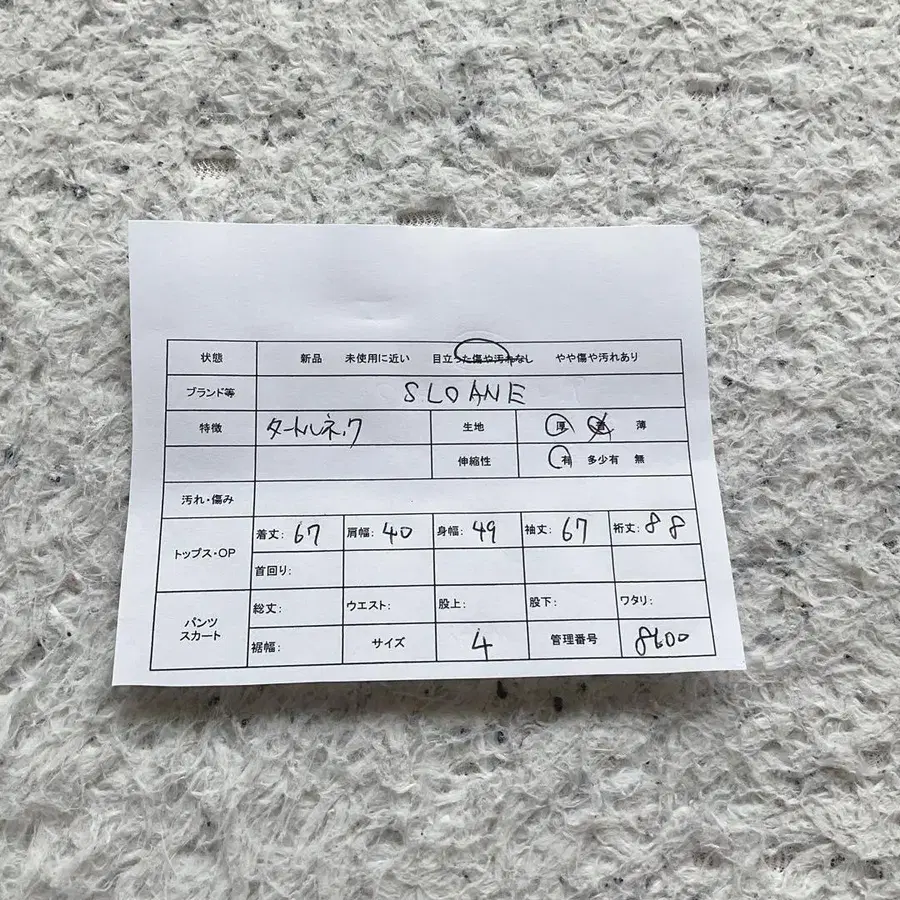 状態 新品 未使用に近い 目立った傷や汚れなし やや傷や汚れあり
ブランド等 SLOANE
特徴 タートルネック 生地 厚 普 薄
伸縮性 有 多少有 無
汚れ・傷み
トップス・OP 着丈: 67 肩幅: 40 身幅: 49 袖丈: 67 裄丈: 88
首回り:
パンツ スカート 総丈: ウエスト: 股上: 股下: ワタリ:
裾幅: サイズ 4 管理番号 8600